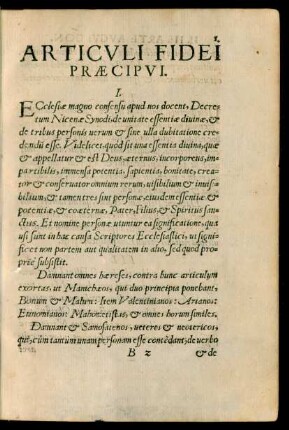 ARTICVLI FIDEI
PRÆCIPVI.
I.
ECclesiæ magno consensu apud nos docent, Decre
tum Nicenæ Synodi, de unitate essentiæ diuinæ, &
de tribus personis uerum & sine ulla dubitatione cre
dendũ esse. Videlicet, quòd sit una essentia diuina, quæ
& appellatur & est Deus, æternus, incorporeus, im
partibilis, immensa potentia, sapientia, bonitate, crea=
tor & conseruator omnium rerum, uisibilium & inuisi
bilium, & tamen tres sint personæ, eiusdem essentiæ &
potentiæ, & coæternæ, Pater, Filius, & Spiritus san
ctus. Et nomine personæ utuntur ea significatione, qua
usi sunt in hac causa Scriptores Ecclesiastici, ut signi=
ficet non partem aut qualitatem in alio, sed quod pro=
priè subsistit.
Damnant omnes hæreses, contra hunc articulum
exortas, ut Manichæos, qui duo principia ponebant,
Bonum & Malum: Item Valentinianos: Arianos:
Eunomianos: Mahometistas, & omnes horum similes.
Damnant & Samosatenos, ueteres & neotericos,
qui, cùm tantùm unam personam esse contẽdant, de uerbo
B 2
& de